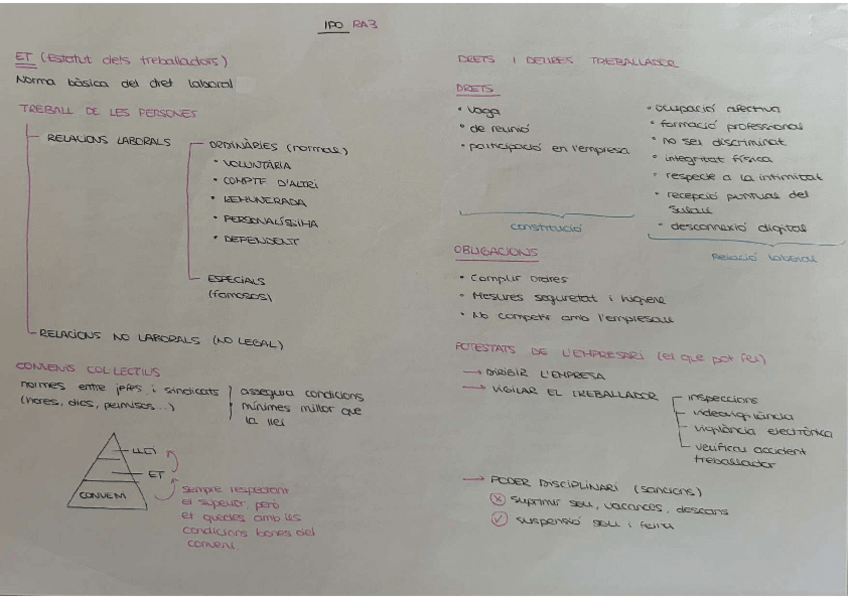 IPO RA3
ET (Estatut dels treballadors)
Norma bàsica del dret laboral
TREBALL DE LES PERSONES
RELACIONS LABORALS
ORDINÀRIES (normals)
• VOLUNTÀRIA
• COMPTE D'ALTRI
• REMUNERADA
• PERSONALÍSSIMA
• DEPENDENT
ESPECIALS
(famosos)
RELACIONS NO LABORALS (NO LEGAL)
CONVENIS COL·LECTIUS
normes entre jefes i sindicats
(hores, dies, permisos...)
assegura condicions
mínimes millor que
la llei
LLEI
ET
CONVENI
sempre respectant
el superior, però
et quedes amb les
condicions bones del
conveni.
DRETS I DEURES TREBALLADOR
DRETS
• vaga
• de reunió
• participació en l'empresa
constitució
• ocupació efectiva
• formació professional
• no ser discriminat
• integritat física
• respecte a la intimitat
• recepció puntual del
salari
• desconnexió digital
Relació laboral
OBLIGACIONS
• Complir ordres
• Mesures seguretat i higiene
• No competir amb l'empresari
POTESTATS DE L'EMPRESARI (el que pot fer)
→ DIRIGIR L'EMPRESA
→ VIGILAR EL TREBALLADOR
inspeccions
videovigilància
vigilància electrònica
verificar accident
treballador
→ PODER DISCIPLINARI (sancions)
suprimir sou, vacances, descans
suspensió sou i feina